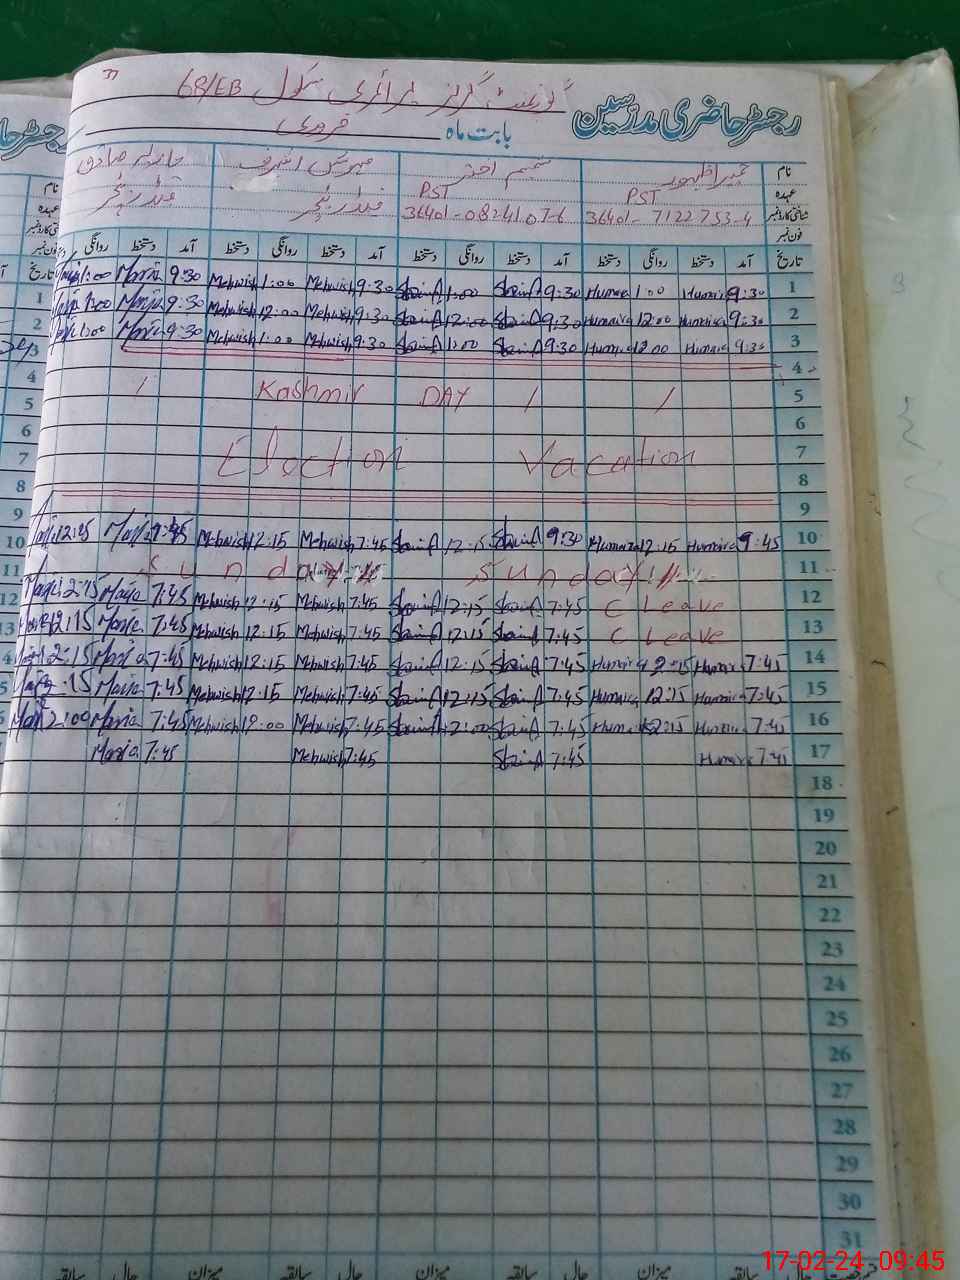 رجسٹر حاضری مدرسین
گورنمنٹ گرلز پرائمری سکول 68/EB
بابت ماہ فروری
نام حمیرا ظہور شمیم اختر مہوش اشرف ماریہ صادق
عہدہ PST PST
شناختی کارڈ نمبر 36401-7122753-4 36401-0824107-6
فون نمبر
تاریخ آمد دستخط روانگی دستخط آمد دستخط روانگی دستخط آمد دستخط روانگی دستخط آمد دستخط روانگی
1 9:30 Humaira 1:00 Humaira 9:30 1:00 9:30 Mehwish 1:00 Mehwish 9:30 Maria 1:00
2 9:30 Humaira 12:00 Humaira 9:30 12:00 9:30 Mehwish 12:00 Mehwish 9:30 Maria
3 9:30 Humaira 12:00 Humaira 9:30 1:00 9:30 Mehwish 1:00 Mehwish 9:30 Maria 1:00
4
5 / Kashmir DAY / /
6
7 Election Vacation
8
9
10 9:45 Humaira 12:15 Humaira 9:30 12:15 7:45 Mehwish 12:15 Mehwish 12:45
11 Sunday Sunday
12 C Leave 7:45 12:15 7:45 Mehwish 12:15 Mehwish 7:45 Maria 12:15
13 C Leave 7:45 12:15 7:45 Mehwish 12:15 Mehwish 7:45 Maria 12:15
14 7:45 Humaira 12:15 Humaira 7:45 12:15 7:45 Mehwish 12:15 Mehwish 7:45 Maria 12:15
15 7:45 Humaira 12:15 Humaira 7:45 12:15 7:45 Mehwish 12:15 Mehwish 7:45 Maria
16 7:45 Humaira 12:15 Humaira 7:45 12:00 7:45 Mehwish 12:00 Mehwish 7:45 Maria 12:00
17 7:45 Humaira 7:45 7:45 Mehwish 7:45 Maria
18
19
20
21
22
23
24
25
26
27
28
29
30
31
میزان حال سابقہ میزان حال سابقہ میزان حال سابقہ میزان حال سابقہ
17-02-24 09:45